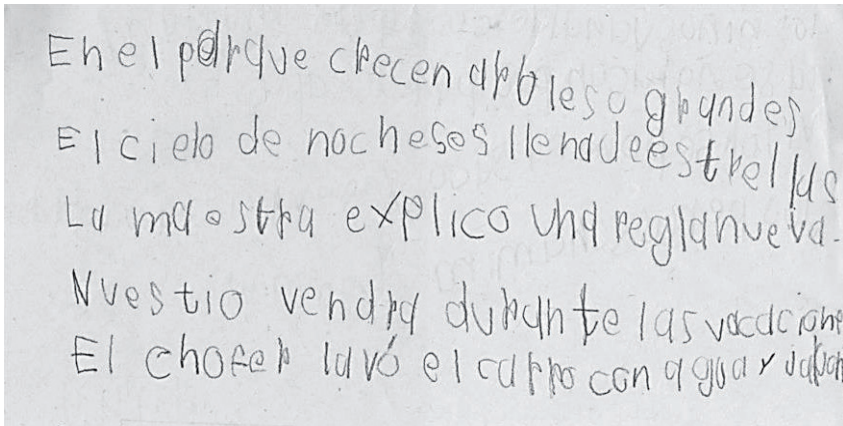 En el parque crecen arbleso grandes
El cielo de noche ses llenadeestrellas
La maostra explico una reglanueva.
Nvestio vendra durante las vacacione
El chofer lavó el carro con agua y jabon